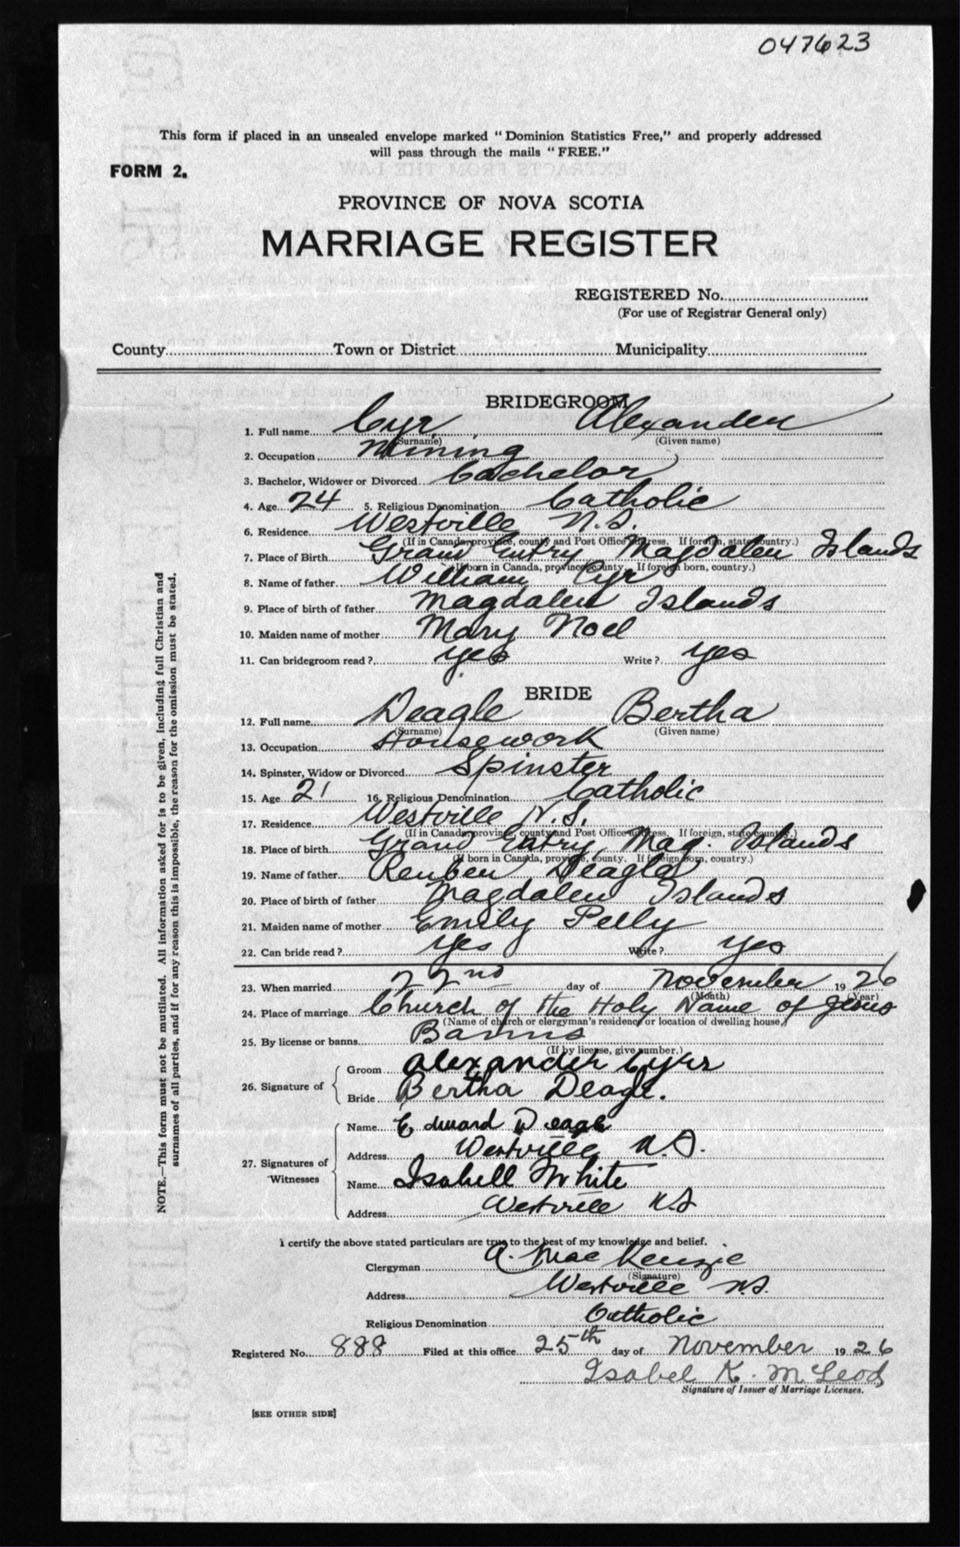 047623
This form if placed in an unsealed envelope marked "Dominion Statistics Free," and properly addressed
will pass through the mails "FREE."
FORM 2.
PROVINCE OF NOVA SCOTIA
MARRIAGE REGISTER
REGISTERED No.
(For use of Registrar General only)
County Town or District Municipality
BRIDEGROOM
1. Full name Cyr Alexander
(Surname) (Given name)
2. Occupation Mining
3. Bachelor, Widower or Divorced Bachelor
4. Age 24 5. Religious Denomination Catholic
6. Residence Westville N.S.
(If in Canada, province, county and Post Office address. If foreign, state country.)
7. Place of Birth Grand Entry Magdalen Islands
(If born in Canada, province, county. If foreign born, country.)
8. Name of father William Cyr
9. Place of birth of father Magdalen Islands
10. Maiden name of mother Mary Noel
11. Can bridegroom read? yes Write? yes
BRIDE
12. Full name Deagle Bertha
(Surname) (Given name)
13. Occupation Housework
14. Spinster, Widow or Divorced Spinster
15. Age 21 16. Religious Denomination Catholic
17. Residence Westville N.S.
(If in Canada, province, county and Post Office address. If foreign, state country.)
18. Place of birth Grand Entry Mag. Islands
(If born in Canada, province, county. If foreign born, country.)
19. Name of father Reuben Deagle
20. Place of birth of father Magdalen Islands
21. Maiden name of mother Emily Pelly
22. Can bride read? yes Write? yes
23. When married 22nd day of November 1926
(Month) (Year)
24. Place of marriage Church of the Holy Name of Jesus
(Name of church or clergyman's residence or location of dwelling house)
25. By license or banns Banns
(If by license, give number.)
26. Signature of
Groom Alexander Cyrs
Bride Bertha Deagle.
27. Signatures of Witnesses
Name Edward Deagle
Address Westville N.S.
Name Isabell White
Address Westville N.S
I certify the above stated particulars are true to the best of my knowledge and belief.
Clergyman A. MacKenzie
(Signature)
Address Westville N.S.
Religious Denomination Catholic
Registered No. 888 Filed at this office 25th day of November 1926
Isabel K. McLeod
Signature of Issuer of Marriage Licenses.
[SEE OTHER SIDE]
NOTE.—This form must not be mutilated. All information asked for is to be given, including full Christian and
surnames of all parties, and if for any reason this is impossible, the reason for the omission must be stated.